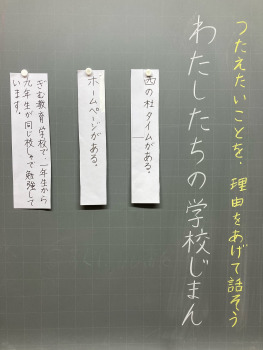 つたえたいことを、理由をあげて話そう
わたしたちの学校じまん
西の杜タイムがある。
ホームページがある。
ぎむ教育学校で、一年生から
九年生が同じ校しゃで勉強して
います。